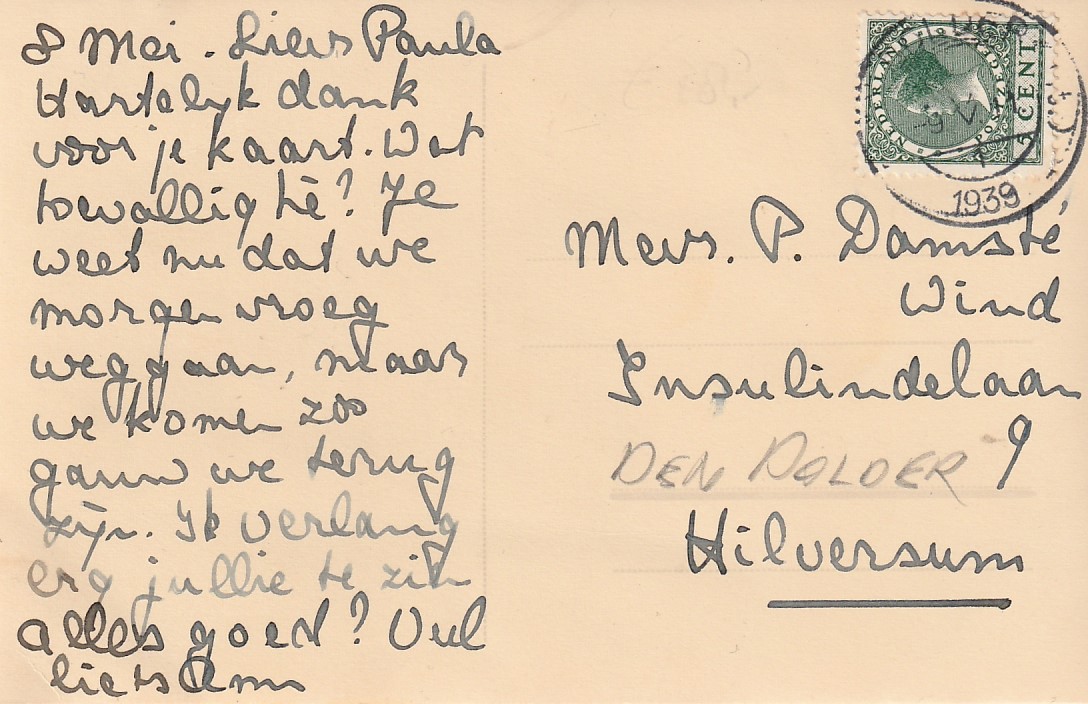 8 Mei. Lieve Paula
Hartelijk dank
voor je kaart. Wat
toevallig hè? Je
weet nu dat we
morgen vroeg
weggaan, maar
we komen zoo
gauw we terug
zijn. Ik verlang
erg jullie te zien
alles goed? Veel
liefs Ann
NEDERLAND
5 CENT
1939
Mevr. P. Damsté
Wind
Insulindelaan
9
DEN DOLDER
Hilversum